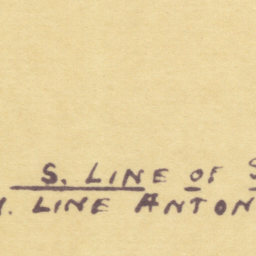 S. LINE OF
LINE ANTON